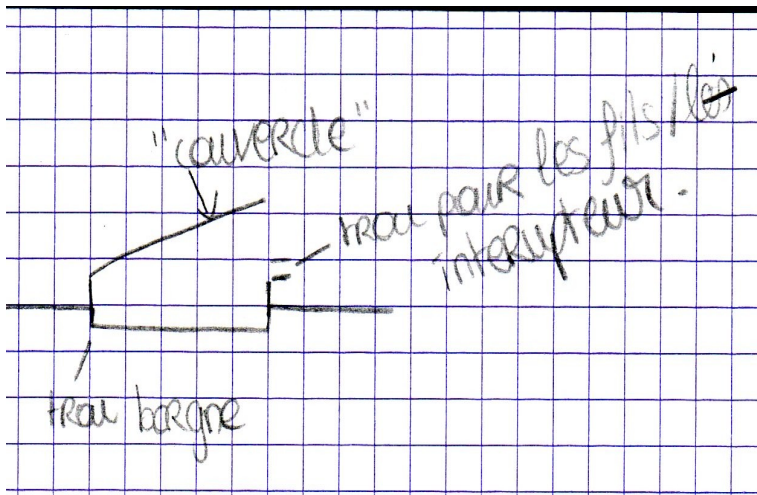 "couvercle"
trou pour les fils / les
interrupteur.
trou borgne